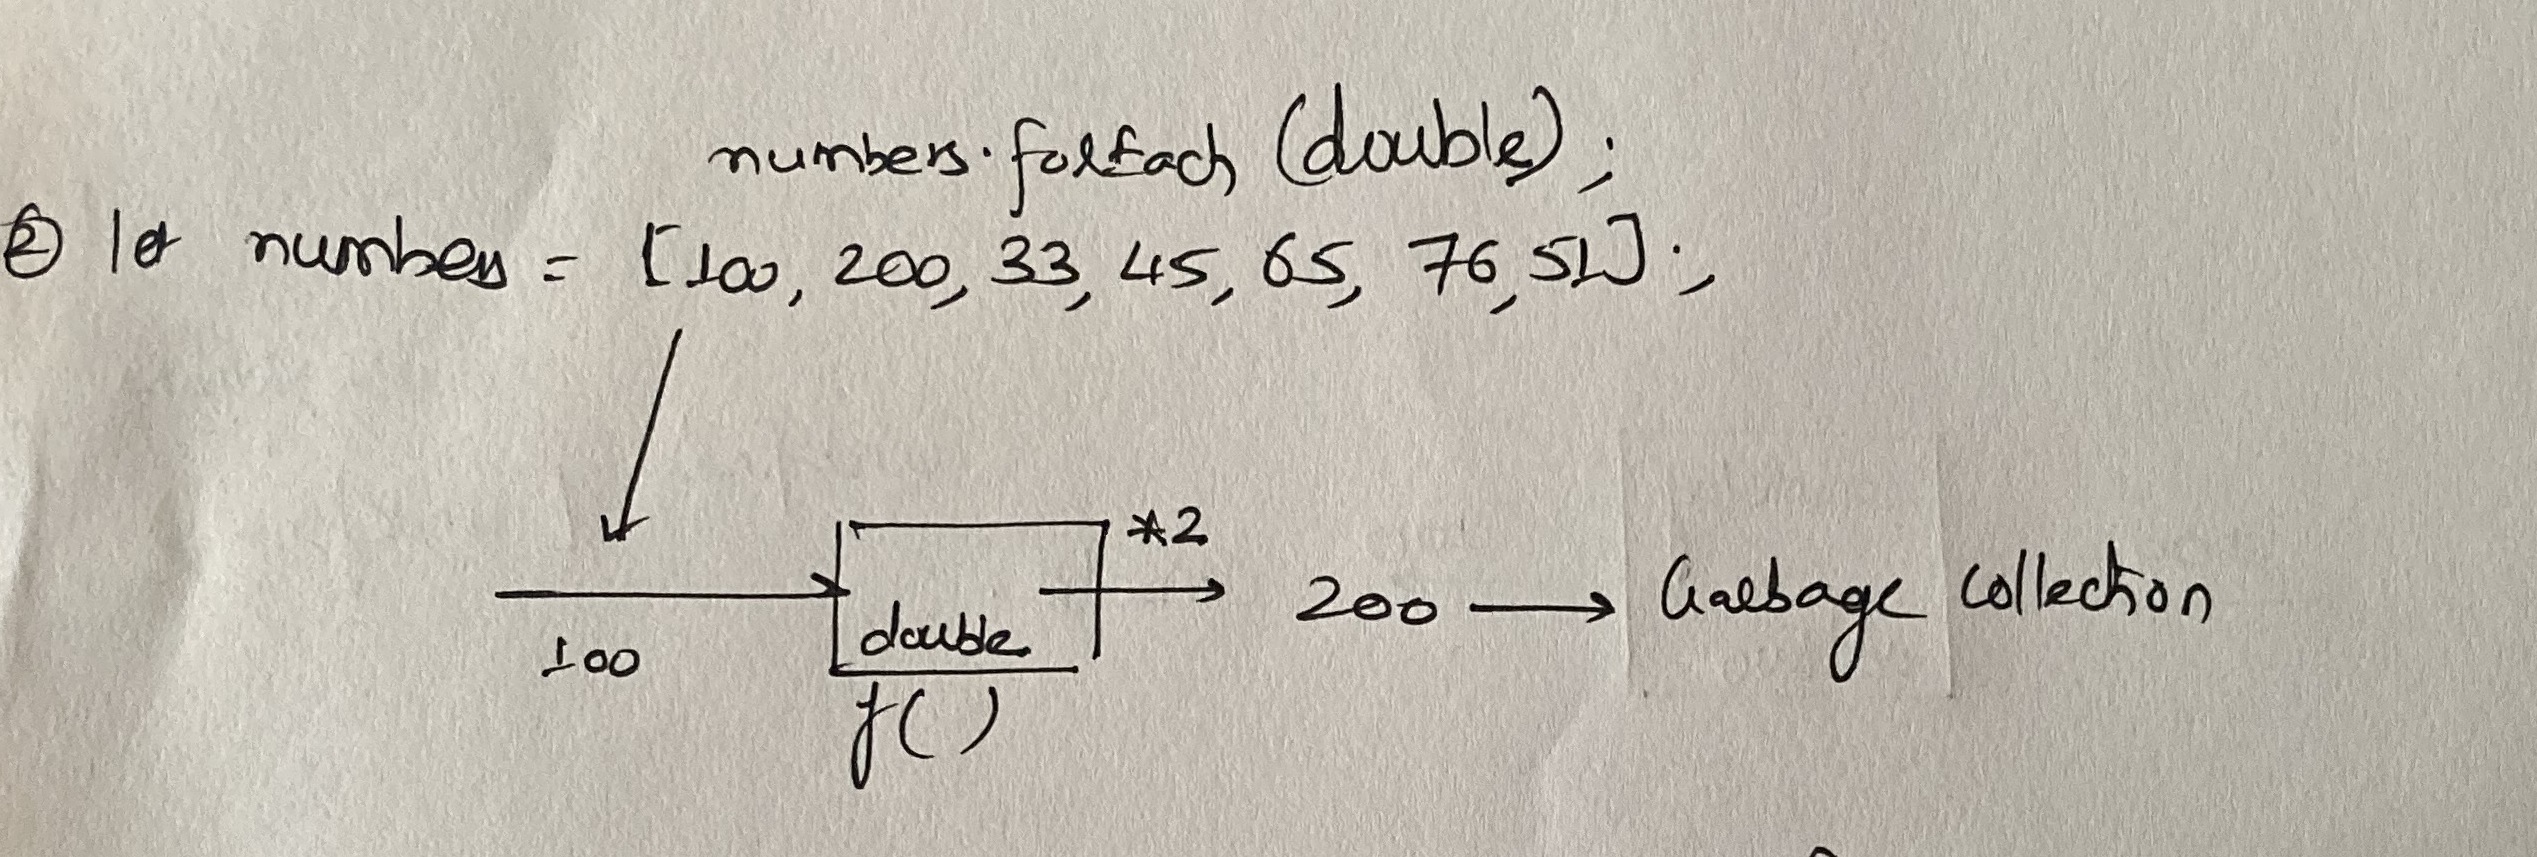 numbers.forEach (double);
② let numbers = [100, 200, 33, 45, 65, 76, 51];
*2
100
double
200 → Garbage Collection
f()